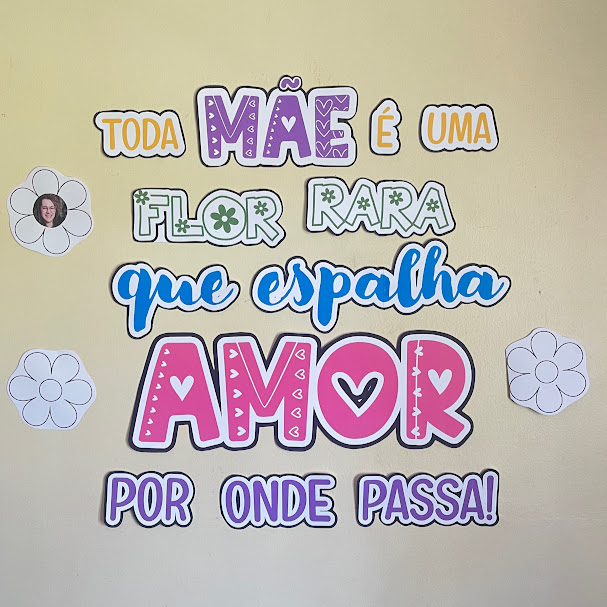 TODA MÃE É UMA
FLOR RARA
que espalha
AMOR
POR ONDE PASSA!